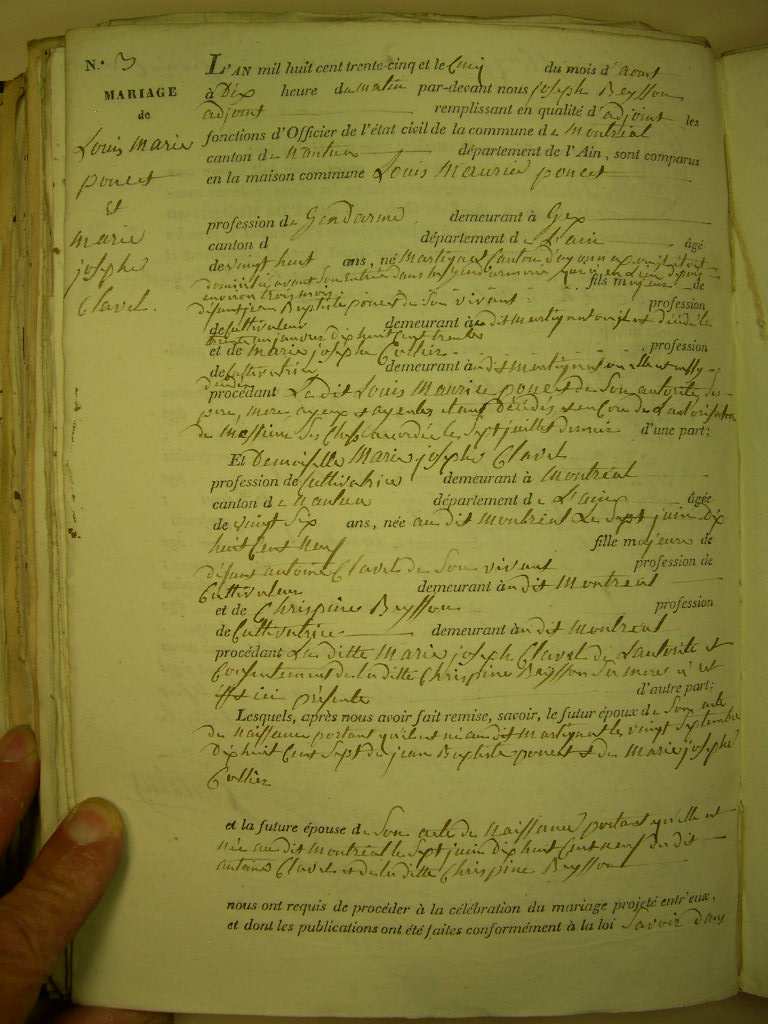 N.° 3
MARIAGE
de
Louis Marie
poncet
et
marie
josephe
Clavel.
L'AN mil huit cent trente-cinq et le Cinq du mois d'aout
à Dix heure du matin par-devant nous joseph Beysson
adjoint remplissant en qualité d'adjoint les
fonctions d'Officier de l'état civil de la commune de Montréal
canton de Nantua département de l'Ain, sont comparus
en la maison commune Louis Maurice poncet
profession de Gendarme demeurant à Gex
canton d département de L'ain âgé
de vingt huit ans, né Martignat Canton d'oyonnax
domicilié avant son entrée dans la gendarmerie
environ trois mois fils majeur de
défunt jean Baptiste poncet de Son vivant profession
de Cultivateur demeurant à dit martignat décédé le
janvier dix huit Cent trente
et de marie josephe Collier profession
de Cultivatrice demeurant à dit martignat ou elle est
décédée
procédant Le dit Louis Maurice poncet de Son autorité, Ses
pere, mere ayeux et ayeules étant Décédés et en Core de L'autorisation
de Messieurs Ses Chefs accordée le Sept juillet dernier d'une part;
Et Demoiselle Marie josephe Clavel
profession de Cultivatrice demeurant à Montréal
canton de Nantua département de L'ain âgée
de vingt Six ans, née au dit Montréal Le Sept juin Dix
huit Cent neuf fille majeure de
défunt antoine Clavel de Son vivant profession de
Cultivateur demeurant au dit Montréal
et de Chrispine Beysson profession
de Cultivatrice demeurant au dit Montréal
procédant La ditte Marie josephe Clavel de L'autorité et
Consentement de la ditte Chrispine Beysson Sa mere
ici présente d'autre part;
Lesquels, après nous avoir fait remise, savoir, le futur époux de Son acte
de Naissance portant qu'il est né au dit Martignat le vingt Septembre
Dix huit Cent Sept de jean Baptiste poncet et de Marie josephe
Collier
et la future épouse de Son acte de Naissance portant qu'elle est
née au dit Montréal le Sept juin Dix huit Cent neuf du dit
antoine Clavel et de la ditte Chrispine Beysson
nous ont requis de procéder à la célébration du mariage projeté entr'eux,
et dont les publications ont été faites conformément à la loi Savoir dans